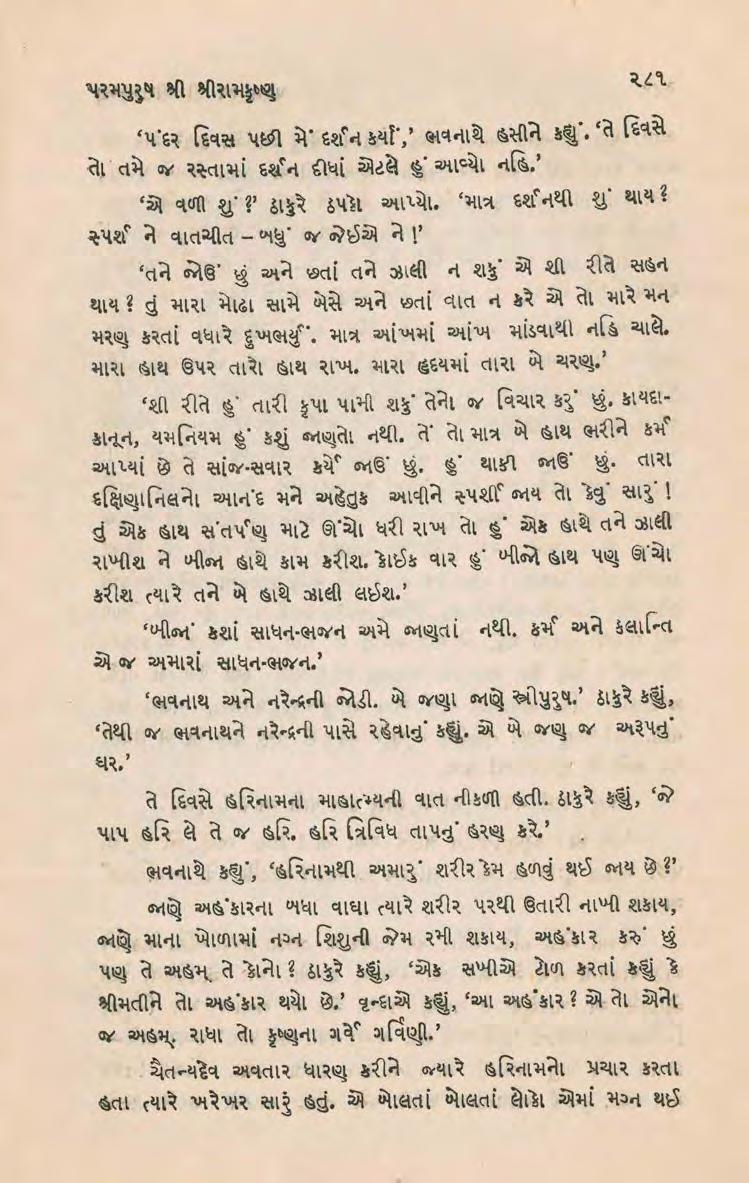 પરમપુરુષ શ્રી શ્રીરામકૃષ્ણ
૨૮૧
‘પંદર દિવસ પછી મેં દર્શન કર્યાં,’ ભવનાથે હસીને કહ્યું. ‘તે દિવસે
તો તમે જ રસ્તામાં દર્શન દીધાં એટલે હું આવ્યો નહિ.’
‘એ વળી શું ?’ ઠાકુરે ઠપકો આપ્યો. ‘માત્ર દર્શનથી શું થાય ?
સ્પર્શ ને વાતચીત – બધું જ જોઈએ ને !’
‘તને જોઉં છું અને છતાં તને ઝાલી ન શકું એ શી રીતે સહન
થાય ? તું મારા મોઢા સામે બેસે અને છતાં વાત ન કરે એ તો મારે મન
મરણ કરતાં વધારે દુખભર્યું. માત્ર આંખમાં આંખ માંડવાથી નહિ ચાલે.
મારા હાથ ઉપર તારો હાથ રાખ. મારા હૃદયમાં તારા બે ચરણ.’
‘શી રીતે હું તારી કૃપા પામી શકું તેનો જ વિચાર કરું છું. કાયદા-
કાનૂન, યમનિયમ હું કશું જાણતો નથી. તેં તો માત્ર બે હાથ ભરીને કર્મ
આપ્યાં છે તે સાંજ-સવાર કર્યે જાઉં છું. હું થાકી જાઉં છું. તારા
દક્ષિણાનિલનો આનંદ મને અહેતુક આવીને સ્પર્શી જાય તો કેવું સારું !
તું એક હાથ સંતર્પણ માટે ઊંચો ધરી રાખ તો હું એક હાથે તને ઝાલી
રાખીશ ને બીજા હાથે કામ કરીશ. કોઈક વાર હું બીજો હાથ પણ ઊંચો
કરીશ ત્યારે તને બે હાથે ઝાલી લઈશ.’
‘બીજાં કશાં સાધન-ભજન અમે જાણતાં નથી. કર્મ અને કલાન્તિ
એ જ અમારાં સાધન-ભજન.’
‘ભવનાથ અને નરેન્દ્રની જોડી. બે જણા જાણે સ્ત્રીપુરુષ.’ ઠાકુરે કહ્યું,
‘તેથી જ ભવનાથને નરેન્દ્રની પાસે રહેવાનું કહ્યું. એ બે જણ જ અરૂપનું
ઘર.’
તે દિવસે હરિનામના માહાત્મ્યની વાત નીકળી હતી. ઠાકુરે કહ્યું, ‘જે
પાપ હરિ લે તે જ હરિ. હરિ ત્રિવિધ તાપનું હરણ કરે.’
ભવનાથે કહ્યું, ‘હરિનામથી અમારું શરીર કેમ હળવું થઈ જાય છે ?’
જાણે અહંકારના બધા વાઘા ત્યારે શરીર પરથી ઉતારી નાખી શકાય,
જાણે માના ખોળામાં નગ્ન શિશુની જેમ રમી શકાય, અહંકાર કરું છું
પણ તે અહમ્ તે કોનો ? ઠાકુરે કહ્યું, ‘એક સખીએ ટોળ કરતાં કહ્યું કે
શ્રીમતીને તો અહંકાર થયો છે.’ વૃન્દાએ કહ્યું, ‘આ અહંકાર ? એ તો એનો
જ અહમ્. રાધા તો કૃષ્ણના ગર્વે ગર્વિણી.’
ચૈતન્યદેવ અવતાર ધારણ કરીને જ્યારે હરિનામનો પ્રચાર કરતા
હતા ત્યારે ખરેખર સારું હતું. એ બોલતાં બોલતાં લોકો એમાં મગ્ન થઈ